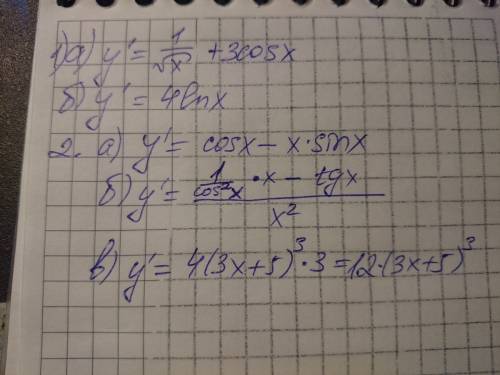 1) а) y' = 1/√x + 3cosx
б) y' = 4lnx
2. а) y' = cosx - x·sinx
б) y' = (1/cos²x · x - tgx)/x²
в) y' = 4(3x+5)³·3 = 12·(3x+5)³